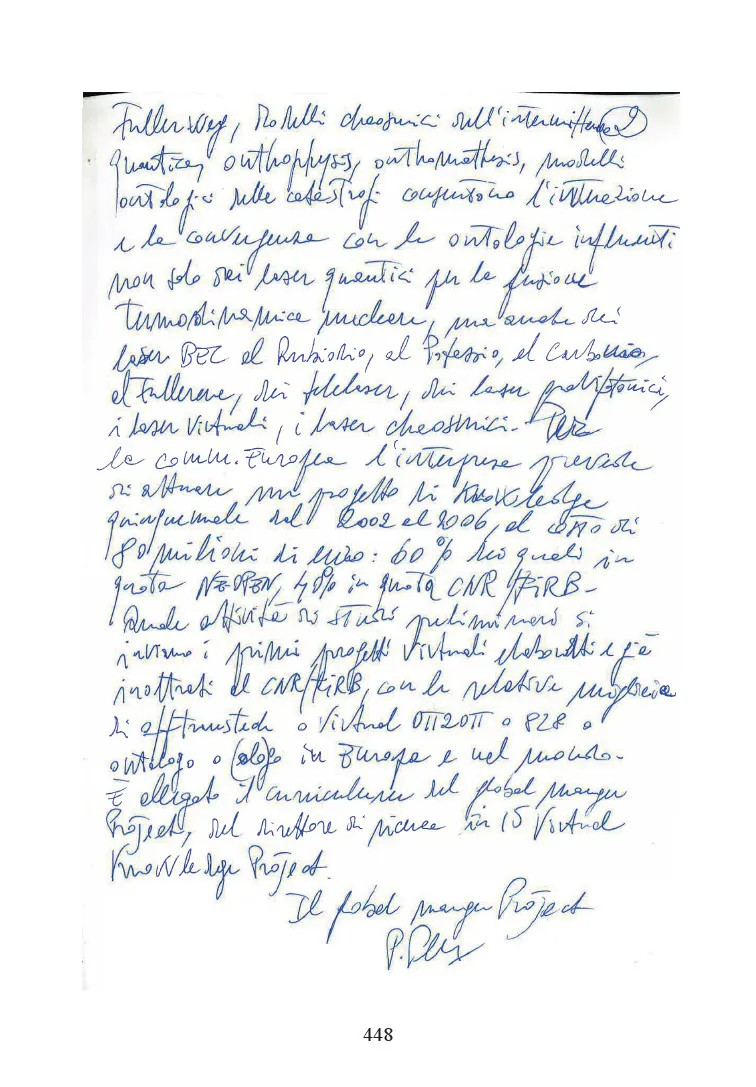 Fullerweg, Modelli chaosmici dell'intermittenza 2
quantica, onthophysis, onthomathesis, modelli
ontologici delle catastrofi consentono l'interazione
e la convergenza con le ontologie influenti
non solo dei laser quantici per la fusione
termodinamica nucleare, ma anche dei
laser BEC al Rubidio, al Potassio, al Carbonio,
al Fullerene, dei telelaser, dei laser
i laser virtuali, i laser chaosmici. Per
la comm. Europea l'interprese prevede
di attuare un progetto di Knowledge
quinquennale dal 2002 al 2006, al costo di
80 milioni di euro: 60% dei quali in
quota NE-OPEN, 40% in quota CNR/FIRB-
Quale attività di studi preliminari si
inviano i primi progetti virtuali elaborati e già
inoltrati al CNR/FIRB, con le relative
di o Virtual o 828 o
ontologo o (olo)go in Europa e nel mondo.
È allegato il curriculum del global manger
Project, del direttore di ricerca in 15 Virtual
Knowledge Project.
Il global manger Project
P.
448